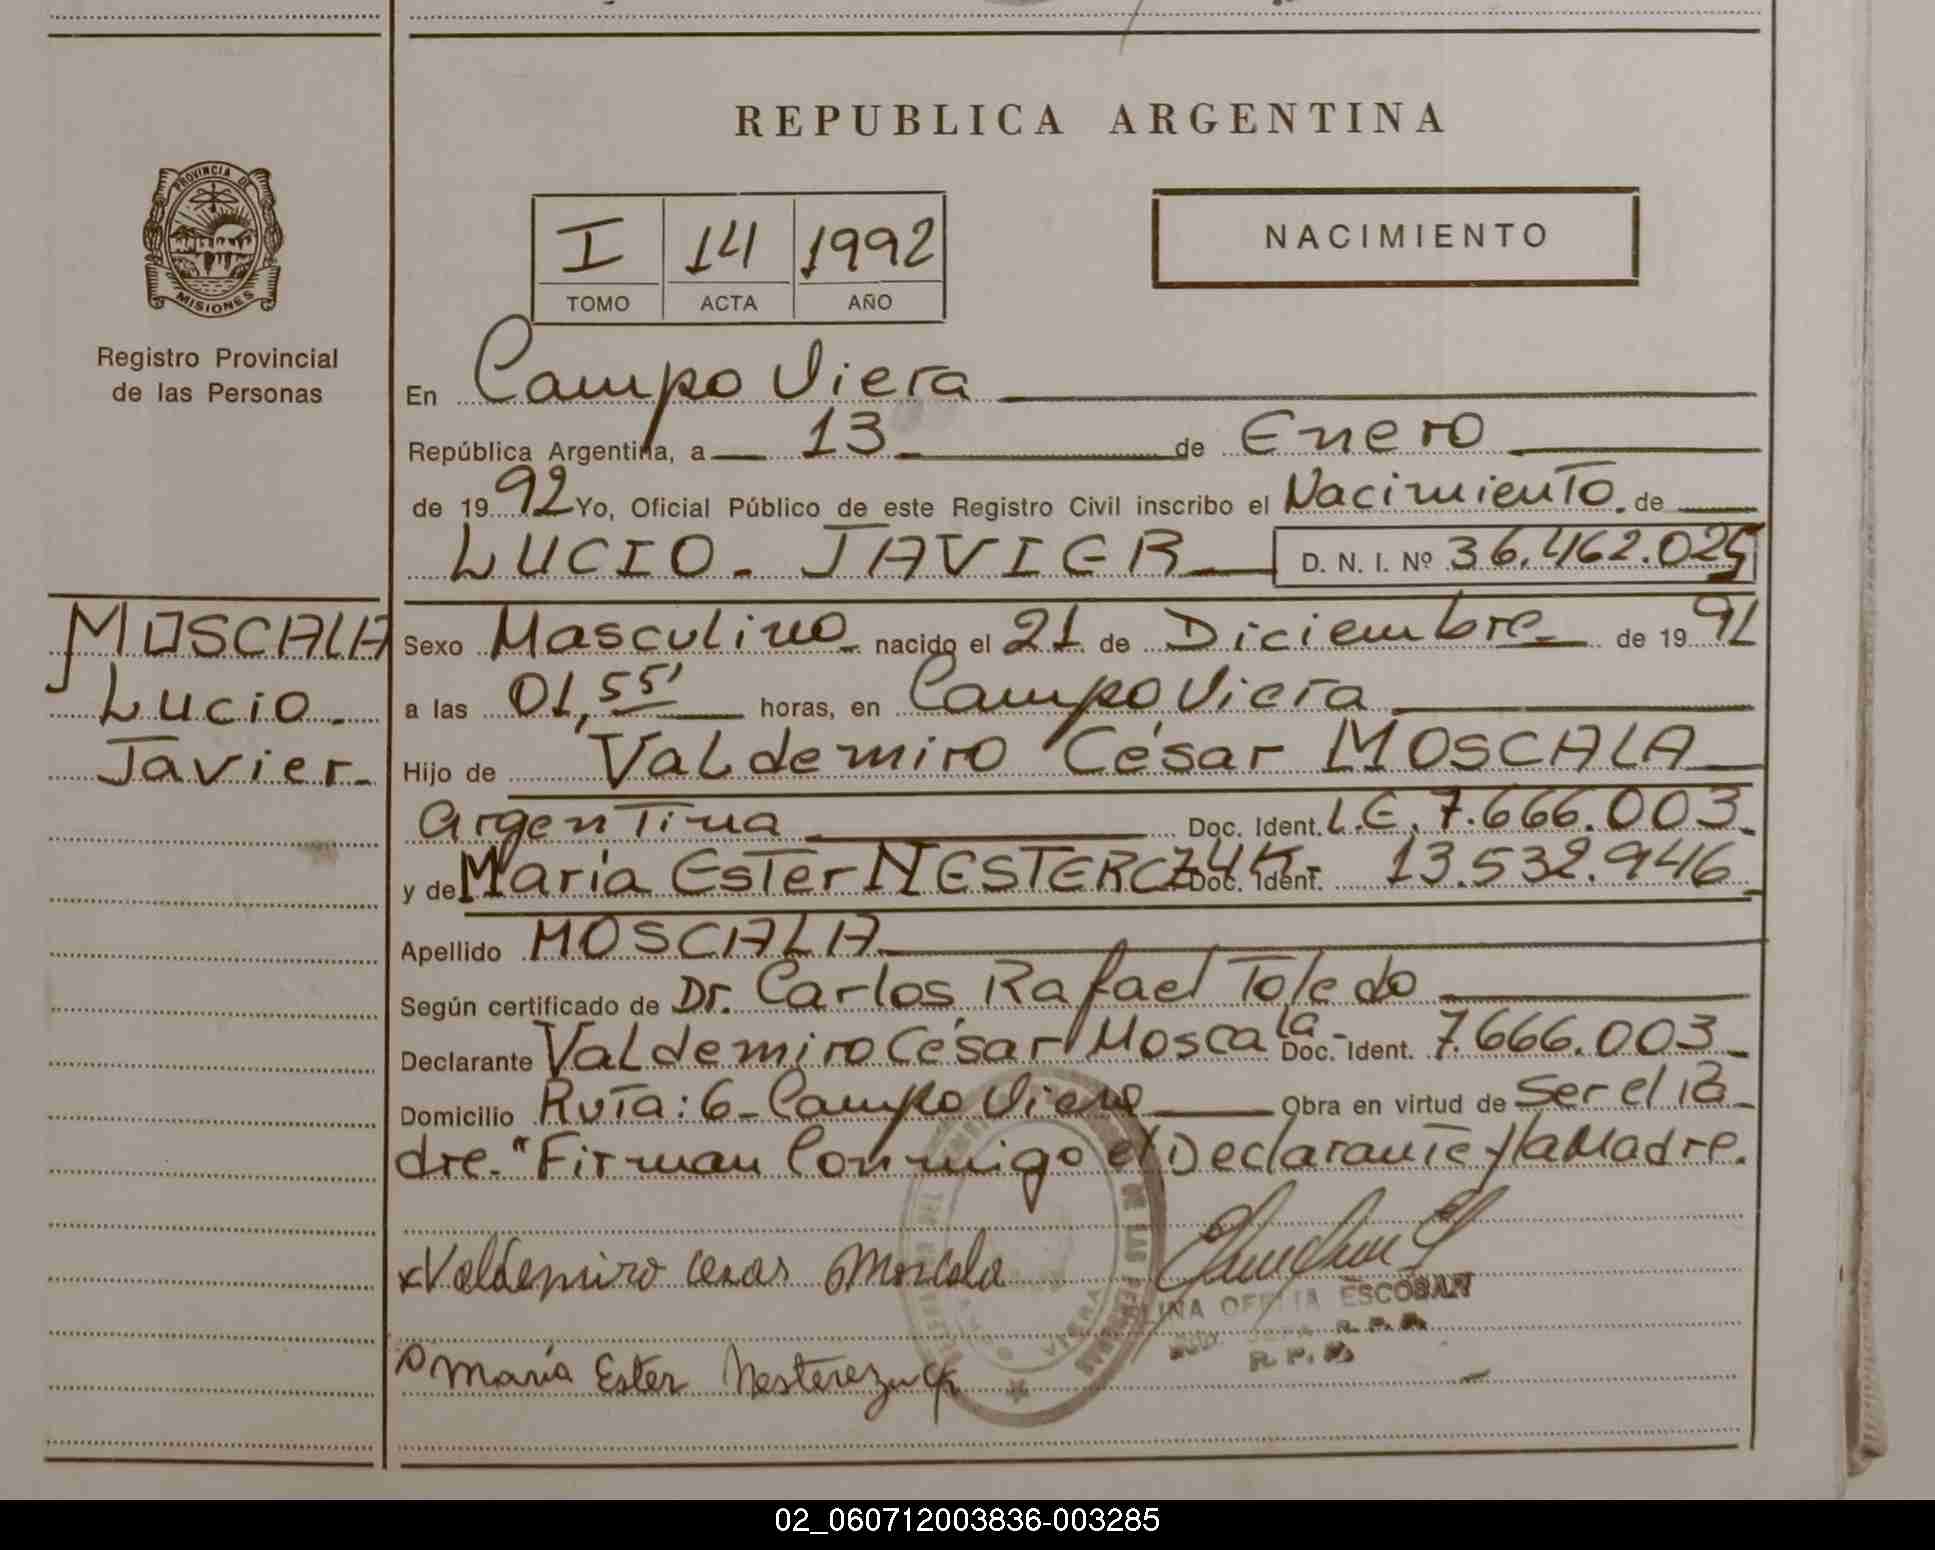 REPUBLICA ARGENTINA
PROVINCIA DE
MISIONES
Registro Provincial
de las Personas
I 14 1992
TOMO ACTA AÑO
NACIMIENTO
En Campo Viera
República Argentina, a 13 de Enero
de 1992 Yo, Oficial Público de este Registro Civil inscribo el Nacimiento de
LUCIO - JAVIER D. N. I. Nº 36.462.025
MOSCALA
Lucio
Javier
Sexo Masculino nacido el 21 de Diciembre de 1991
a las 01,55' horas, en Campo Viera
Hijo de Valdemiro César MOSCALA
Argentina Doc. Ident. L.E. 7.666.003
y de María Ester NESTERCZUK Doc. Ident. 13.532.946
Apellido MOSCALA
Según certificado de Dr. Carlos Rafael Toledo
Declarante Valdemiro César Moscala Doc. Ident. 7.666.003
Domicilio Ruta: 6 - Campo Viera Obra en virtud de Ser el Pa
dre. "Firman Conmigo el Declarante y la Madre.
x Valdemiro Cesar Moscala
María Ester Nesterezuck
DE LAS PERSONAS
VIERA
ESCOBAR
R. P. P.
02_060712003836-003285